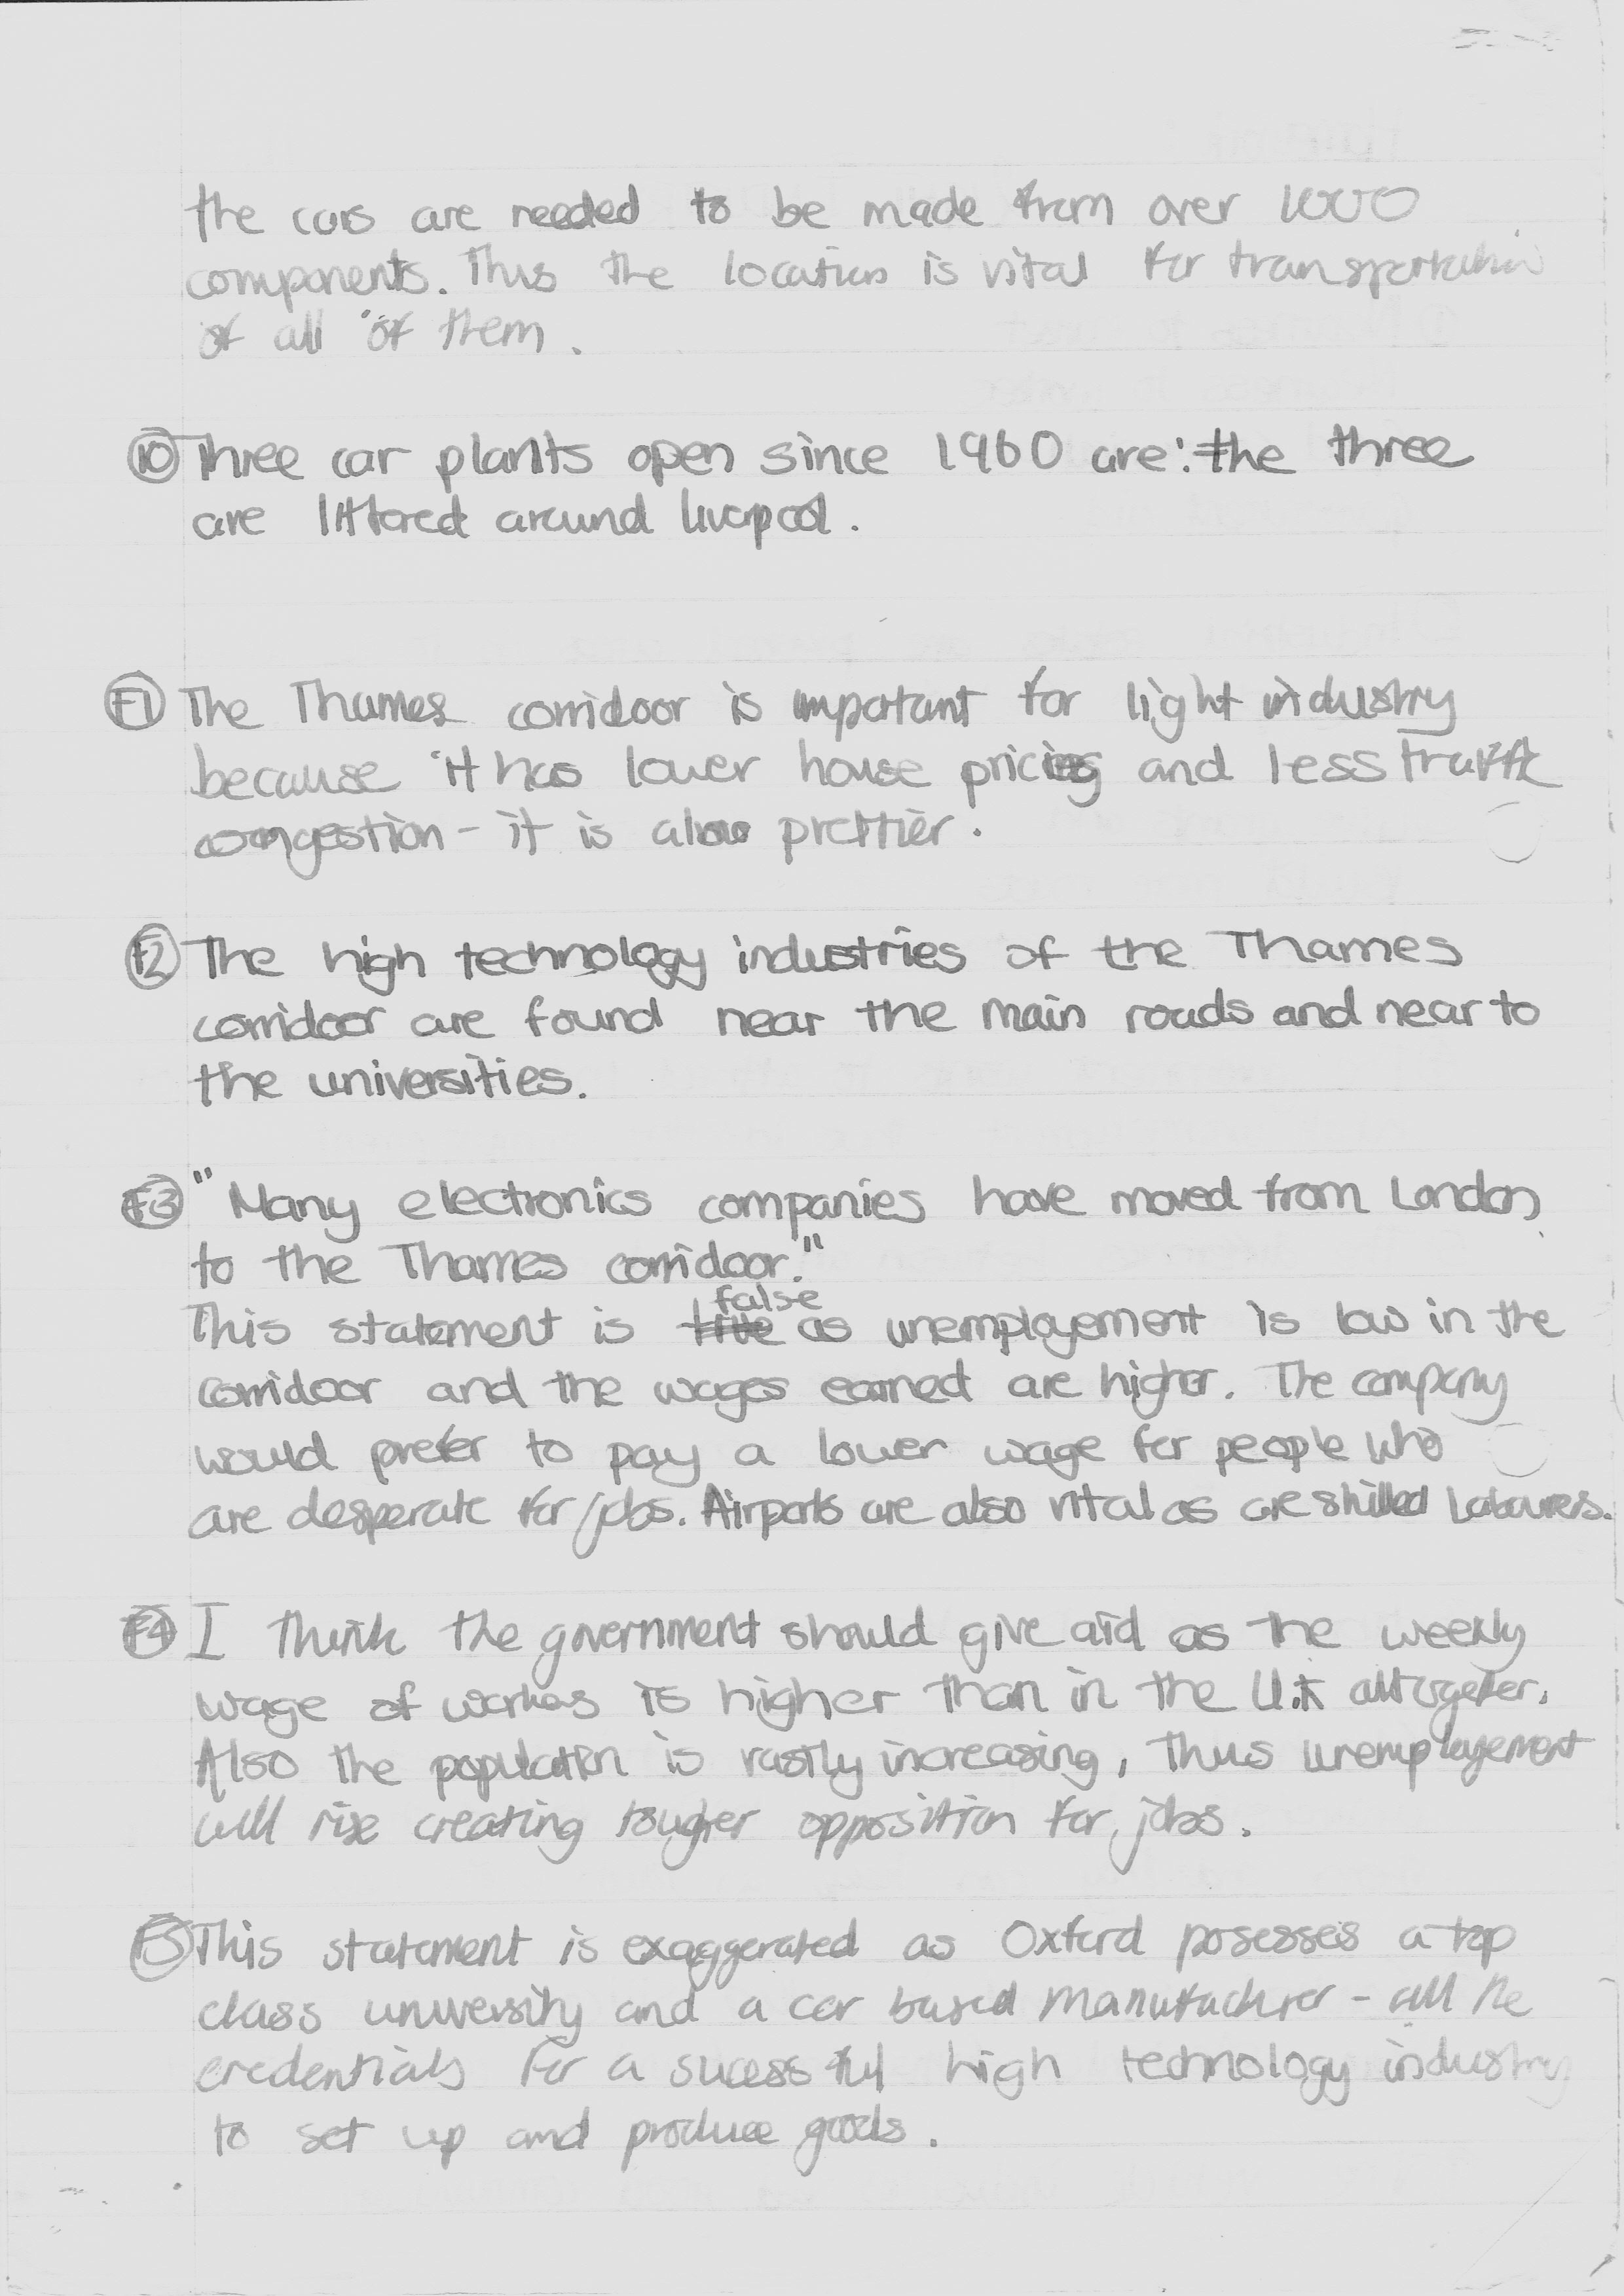 the cars are needed to be made from over 1000
components. Thus the location is vital for transportation
of all of them.
10 Three car plants open since 1960 are: the three
are littered around liverpool.
F1 The Thames corridoor is impotant for light industry
because it has lower house pricing and less traffic
congestion - it is also prettier.
F2 The high technology industries of the Thames
corridoor are found near the main roads and near to
the universities.
F3 "Many electronics companies have moved from London
to the Thames corridoor."
false
This statement is true as unemployement is low in the
corridoor and the wages earned are higher. The company
would prefer to pay a lower wage for people who
are desperate for jobs. Airports are also vital as are skilled Labourers.
F4 I think the government should give aid as the weekly
wage of workes is higher than in the U.K alltogether.
Also the population is vastly increasing, thus unemployement
will rise creating tougher opposition for jobs.
F5 This statement is exaggerated as Oxford posesses a top
class university and a car based manufacturer - all the
credentials for a sucessful high technology industry
to set up and produce goods.